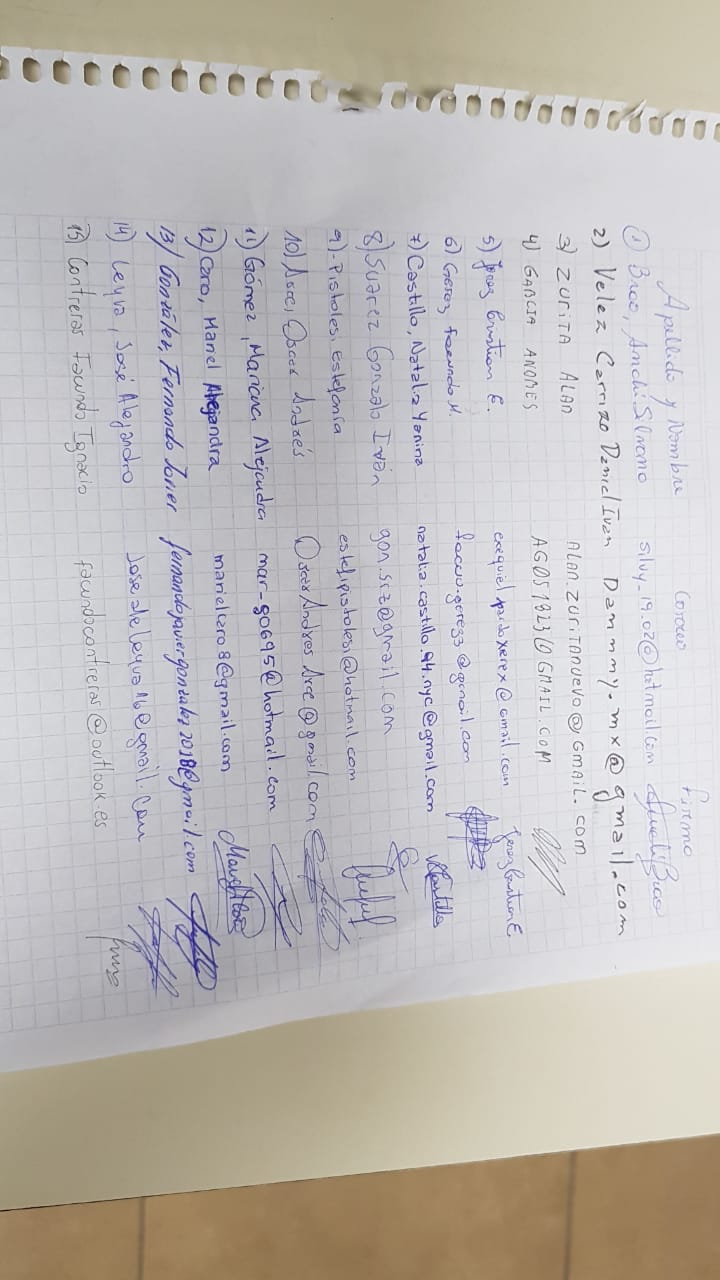 Apellido y Nombre Correo Firma
1) Brao, Anahi Silvana silvy_19.02@hotmail.com
2) Velez Carrizo Daniel Ivan Dannny.mx@gmail.com
3) ZURITA ALAN ALAN.ZURITANUEVO@GMAIL.COM
4) GARCIA ANDRES AG051823@GMAIL.COM
5) Jerez Cristian E. exequielpardoxerex@gmail.com Jerez Cristian E
6) Gerez facundo M. facuu.gerez3@gmail.com
7) Castillo, Natalia Yanina natalia.castillo.94.nyc@gmail.com NCastillo
8) Suarez Gonzalo Iván gon.srz@gmail.com
9)-Pistolesi Estefanía estefipistolesi@hotmail.com
10) Arce, Oscar Andrés OscarAndresArce@gmail.com
11) Gómez, Mariana Alejandra mar_g0695@hotmail.com
12) Caro, Mariel Alejandra marielcaro8@gmail.com
13) González, Fernando Javier fernandojaviergonzalez2018@gmail.com
14) Leyva, José Alejandro Josealeleyva16@gmail.com
15) Contreras Facundo Ignacio facundocontreras@outlook.es